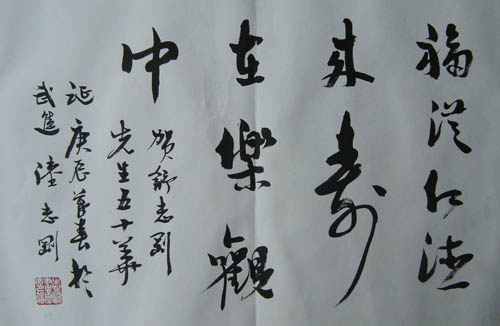 福從仁德
來壽
在樂觀
中
賀舒志剛
先生五十華
誕庚辰暮春於
武進陸志剛